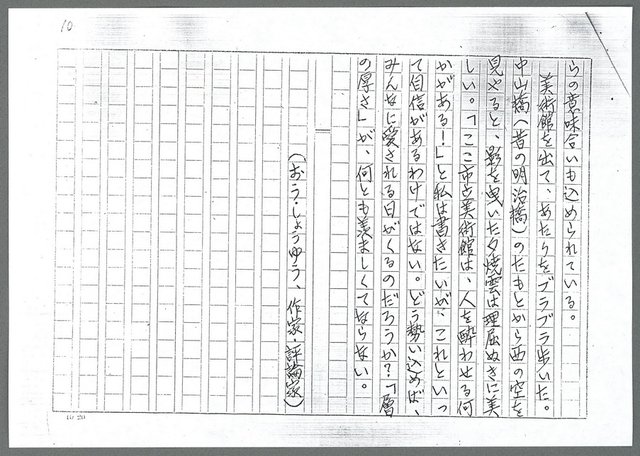 10
らの意味合いも込められている。
美術館を出て、あたりをブラブラ歩いた。
中山橋(昔の明治橋)のたもとから西の空を
見やると、影を曳いた夕焼雲は理屈ぬきに美
しい。「ここ市立美術館は、人を酔わせる何
かがある!」と私は書きたいが、これといっ
て自信があるわけではない。どう勢い込めば、
みんなに愛される日がくるのだろうか?「層
の厚さ」が、何とも羨ましくてならない。
(おう・しょうゆう、作家・評論家)